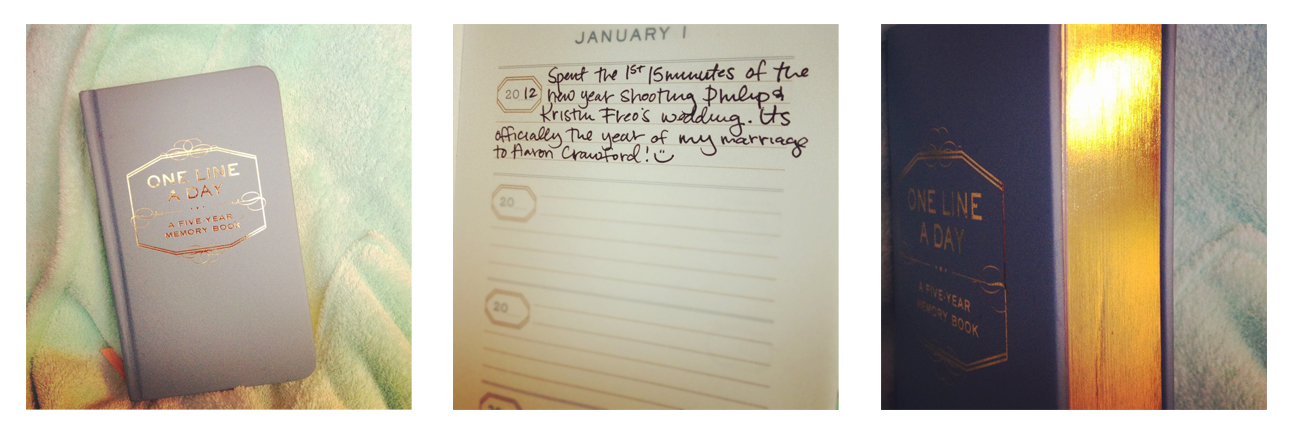 ONE LINE
A DAY
A FIVE-YEAR
MEMORY BOOK
JANUARY 1
2012 Spent the 1st 15 minutes of the
new year shooting Philip &
Kristin Freo's wedding. It's
officially the year of my marriage
to Aaron Crawford! :)
20
20
20
ONE LINE
A DAY
A FIVE-YEAR
MEMORY BOOK